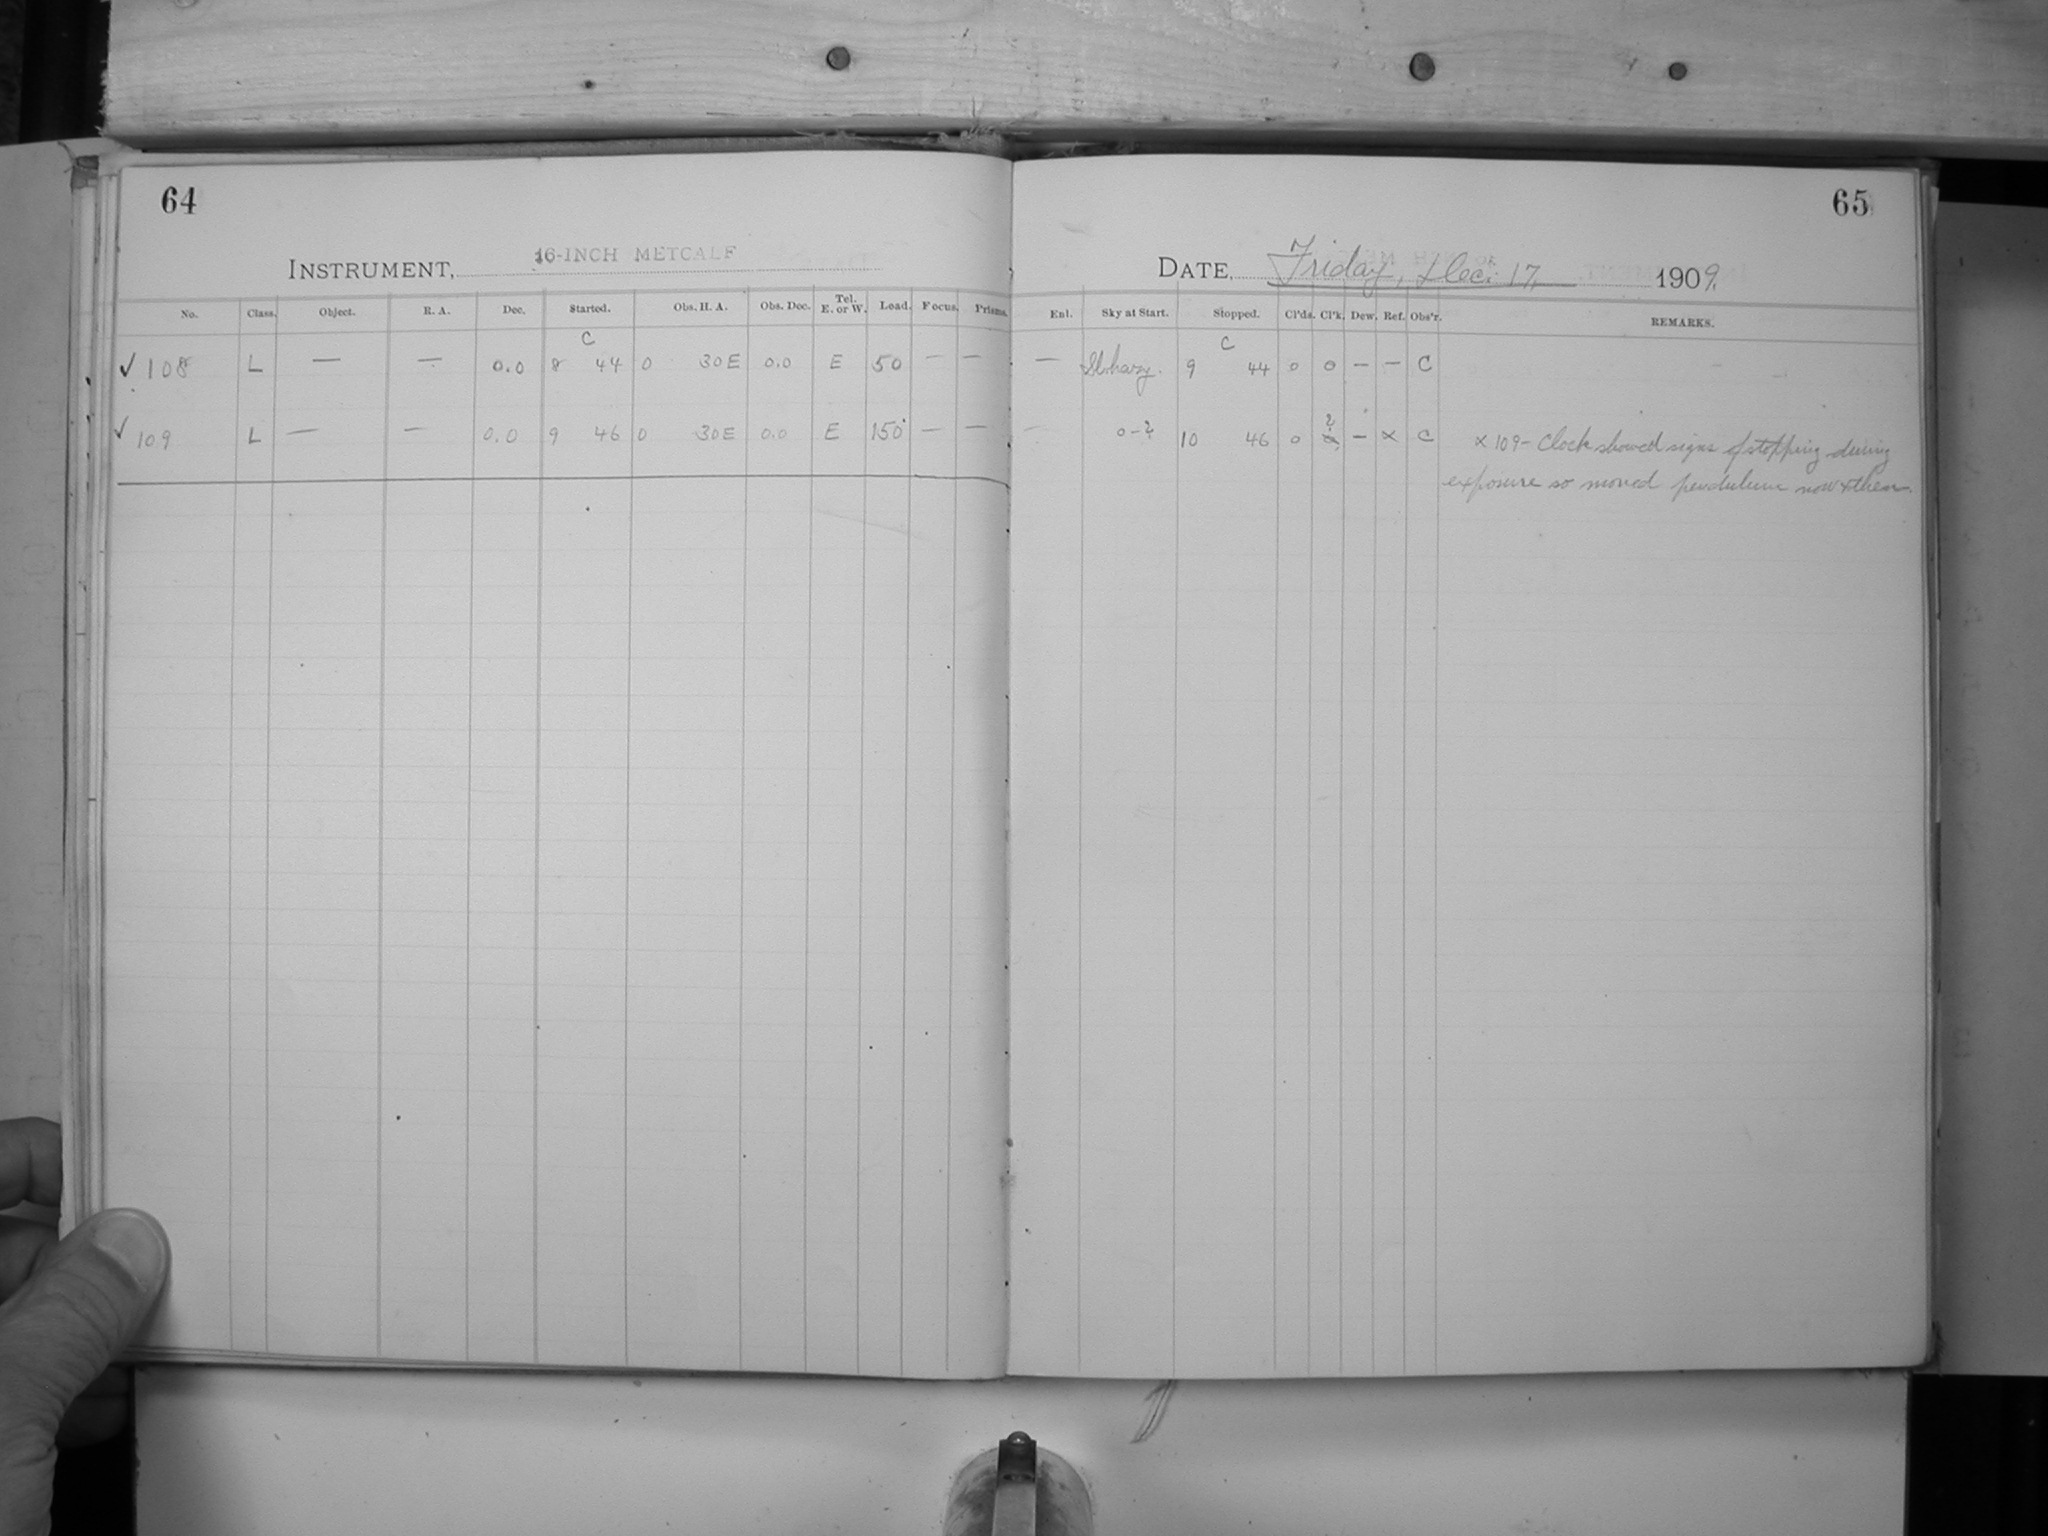 64
65
INSTRUMENT, 16-INCH METCALF
DATE, Friday, Dec. 17, 1909.
No. Class. Object. R. A. Dec. Started. Obs. H. A. Obs. Dec. Tel. E. or W. Load. Focus. Prisms. Enl. Sky at Start. Stopped. Cl'ds. Cl'k. Dew. Ref. Obs'r. REMARKS.
C C
✓ 108 L — — 0.0 8 44 0 30E 0.0 E 50 — — — Sl. hazy. 9 44 0 0 — — C
✓ 109 L — — 0.0 9 46 0 30E 0.0 E 150 — — — 0-? 10 46 0 ? — x C x 109 - Clock showed signs of stopping during
exposure so moved pendulum now & then.